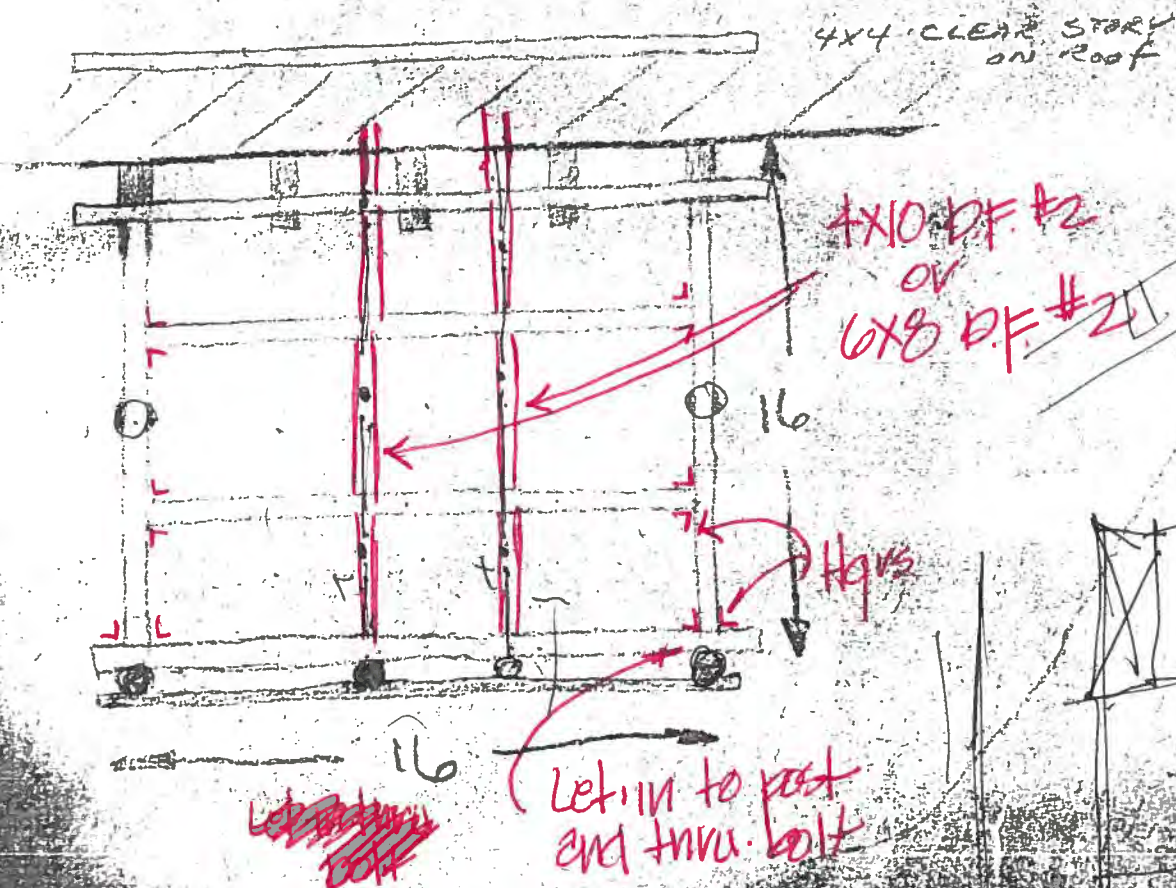 4X4 CLEAR STORY
ON ROOF
4X10 D.F. #2
or
6X8 D.F. #2
16
Hgrs
16
Let-in to post
and thru-bolt
bolt